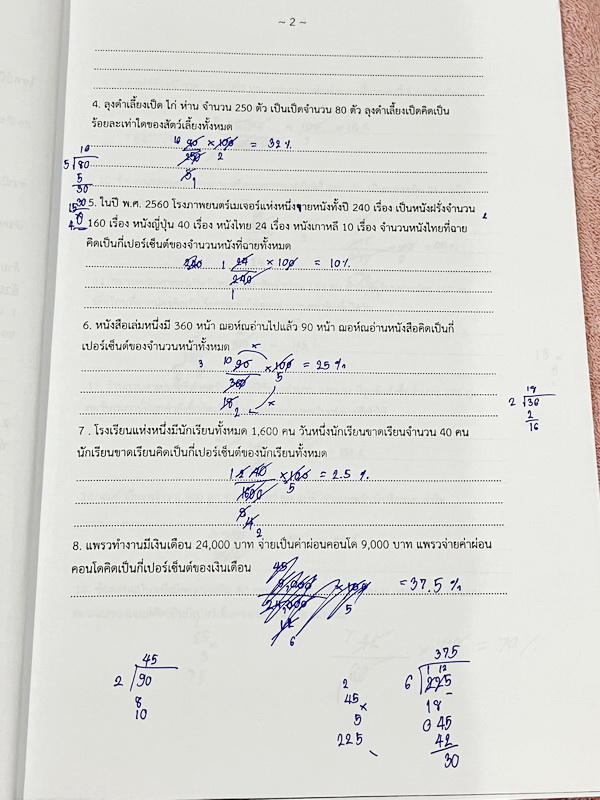 ~ 2 ~
4. ลุงดำเลี้ยงเป็ด ไก่ ห่าน จำนวน 250 ตัว เป็นเป็ดจำนวน 80 ตัว ลุงดำเลี้ยงเป็ดคิดเป็น
ร้อยละเท่าใดของสัตว์เลี้ยงทั้งหมด
= 32 %
5. ในปี พ.ศ. 2560 โรงภาพยนตร์เมเจอร์แห่งหนึ่งฉายหนังทั้งปี 240 เรื่อง เป็นหนังฝรั่งจำนวน
160 เรื่อง หนังญี่ปุ่น 40 เรื่อง หนังไทย 24 เรื่อง หนังเกาหลี 10 เรื่อง จำนวนหนังไทยที่ฉาย
คิดเป็นกี่เปอร์เซ็นต์ของจำนวนหนังที่ฉายทั้งหมด
24 × 100 = 10 %
240
1
6. หนังสือเล่มหนึ่งมี 360 หน้า ณอห์ณอ่านไปแล้ว 90 หน้า ณอห์ณอ่านหนังสือคิดเป็นกี่
เปอร์เซ็นต์ของจำนวนหน้าทั้งหมด
90 × 100 = 25 %
360 5
18 2
18
2 36
2
16
7 . โรงเรียนแห่งหนึ่งมีนักเรียนทั้งหมด 1,600 คน วันหนึ่งนักเรียนขาดเรียนจำนวน 40 คน
นักเรียนขาดเรียนคิดเป็นกี่เปอร์เซ็นต์ของนักเรียนทั้งหมด
40 × 100 = 2.5 %
1600 5
8
4 2
8. แพรวทำงานมีเงินเดือน 24,000 บาท จ่ายเป็นค่าผ่อนคอนโด 9,000 บาท แพรวจ่ายค่าผ่อน
คอนโดคิดเป็นกี่เปอร์เซ็นต์ของเงินเดือน
45
9,000 × 100 = 37.5 %
24,000 5
12
6
45
2 90
8
10
2
45 ×
5
225
375
6 225
18
045
42
30